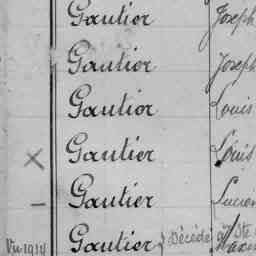 Gautier Joseph
Gautier Joseph
Gautier Louis
× Gautier Louis
– Gautier Lucien
Vu 1914 Gautier Décédé à Ste